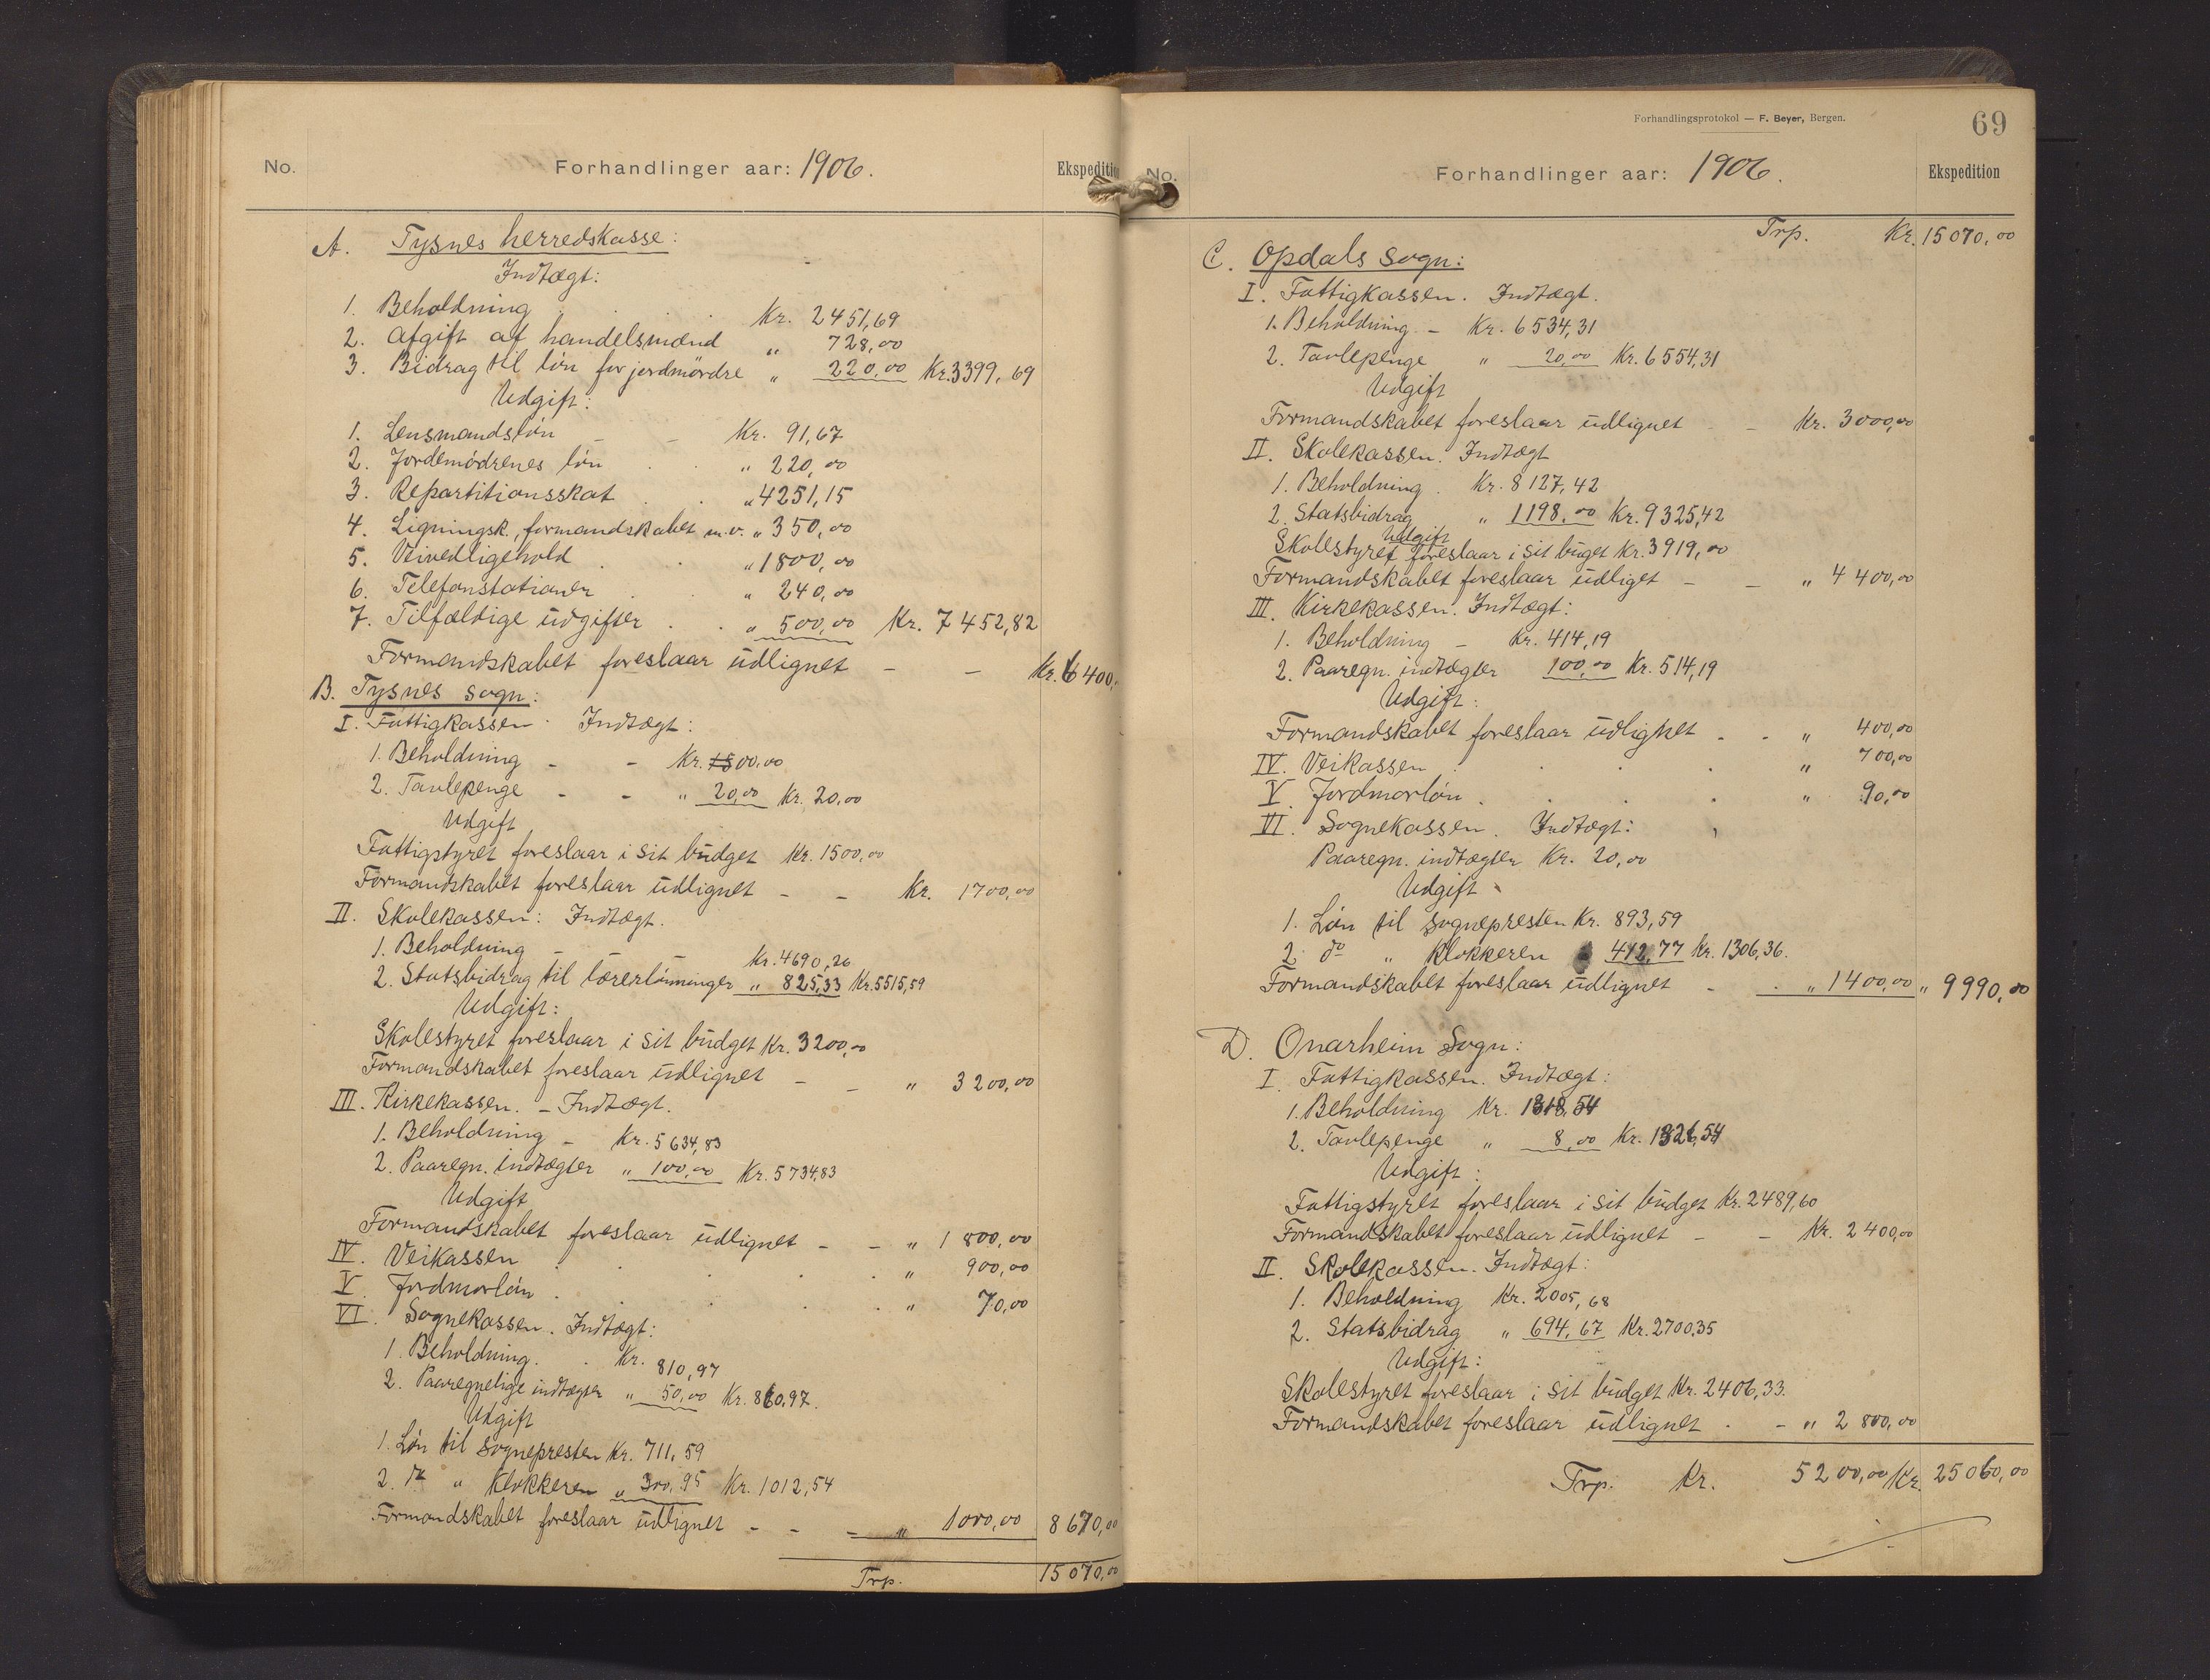 No. Forhandlinger aar: 1906. Ekspedition
A. Tysnes herredskasse:
Indtægt:
1. Beholdning . . . Kr. 2451,69
2. Afgift af handelsmænd „ 728,00
3. Bidrag til løn for jordmødre „ 220,00 Kr. 3399,69
Udgift:
1. Lensmandsløn - - Kr. 91,67
2. Jordemødrenes løn . . „ 220,00
3. Repartitionsskat . . „ 4251,15
4. Ligningsk., formandskabet m.v. „ 350,00
5. Veivedligehold . . „ 1800,00
6. Telefonstationer . . „ 240,00
7. Tilfældige udgifter . . „ 500,00 Kr. 7452,82
Formandskabet foreslaar udlignet - - Kr. 6400,
B. Tysnes sogn:
I. Fattigkassen. Indtægt:
1. Beholdning - - Kr. 1500,00
2. Tavlepenge - - „ 20,00 Kr. 20,00
Udgift
Fattigstyret foreslaar i sit budget Kr. 1500,00
Formandskabet foreslaar udlignet - - Kr. 1700,00
II. Skolekassen: Indtægt.
1. Beholdning - Kr. 4690,26
2. Statsbidrag til lærerlønninger „ 825,33 Kr. 5515,59
Udgift:
Skolestyret foreslaar i sit budget Kr. 3200,00
Formandskabet foreslaar udlignet - - „ 3200,00
III. Kirkekassen. - Indtægt.
1. Beholdning - Kr. 5634,83
2. Paaregn. indtægter „ 100,00 Kr. 5734,83
Udgift
Formandskabet foreslaar udlignet - - „ 1800,00
IV. Veikassen . . . . „ 900,00
V. Jordmorløn . . . . „ 70,00
VI. Sognekassen. Indtægt:
1. Beholdning. . Kr. 810,97
2. Paaregnelige indtægter „ 50,00 Kr. 860,97.
Udgift
1. Løn til sognepresten Kr. 711,59
2. do „ klokkeren „ 300,95 Kr. 1012,54
Formandskabet foreslaar udlignet - - - „ 1000,00 8670,00
Trp. 15070,00
Forhandlingsprotokol — F. Beyer, Bergen.
69
No. Forhandlinger aar: 1906. Ekspedition
Trp. Kr. 15070,00
C. Opdals sogn:
I. Fattigkassen. Indtægt.
1. Beholdning - Kr. 6534,31
2. Tavlepenge „ 20,00 Kr. 6554,31
Udgift
Formandskabet foreslaar udlignet - - Kr. 3000,00
II. Skolekassen. Indtægt
1. Beholdning . Kr. 8127,42
2. Statsbidrag „ 1198,00 Kr. 9325,42
Udgift
Skolestyret foreslaar i sit buget Kr. 3919,00
Formandskabet foreslaar udliget - - „ 4400,00
III. Kirkekassen. Indtægt:
1. Beholdning - Kr. 414,19
2. Paaregn. indtægter 100,00 Kr. 514,19
Udgift:
Formandskabet foreslaar udlignet . . „ 400,00
IV. Veikassen . . . „ 700,00
V. Jordmorløn . . . „ 90,00
VI. Sognekassen. Indtægt:
Paaregn. indtægter Kr. 20,00
Udgift
1. Løn til sognepresten Kr. 893,59
2. do „ klokkeren 412,77 Kr. 1306,36.
Formandskabet foreslaar udlignet - . „ 1400,00 „ 9990,00
D. Onarheim Sogn:
I. Fattigkassen. Indtægt:
1. Beholdning Kr. 1318,54
2. Tavlepenge „ 8,00 Kr. 1326,54
Udgift:
Fattigstyret foreslaar i sit budget Kr. 2489,60
Formandskabet foreslaar udlignet - - Kr. 2400,00
II. Skolekassen. Indtægt:
1. Beholdning Kr. 2005,68
2. Statsbidrag „ 694,67 Kr. 2700,35
Udgift:
Skolestyret foreslaar i sit budget Kr. 2406,33.
Formandskabet foreslaar udlignet . - „ 2800,00
Trp. Kr. 5200,00 Kr. 25060,00